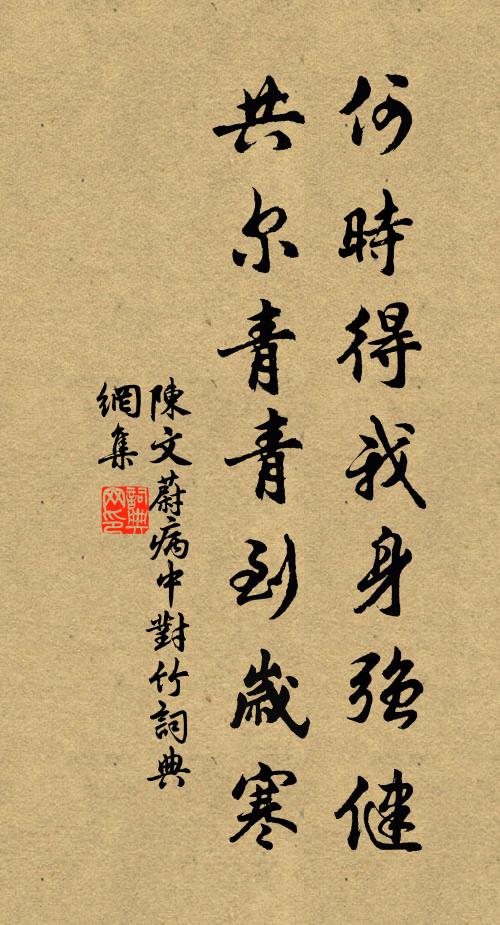 何時得我身強健
共尔青青到歲寒
陳文蔚病中對竹詞典
網集
詞典网印